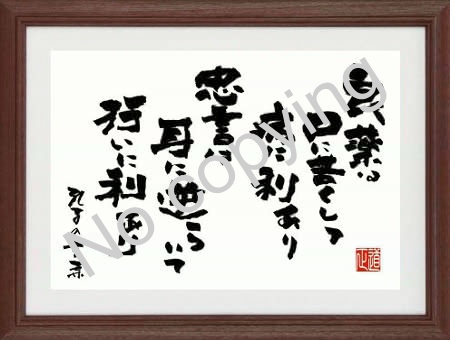 良薬は
口に苦くして
病に利あり
忠言は
耳に逆らいて
行いに利あり
孔子の言葉
道正
No copying